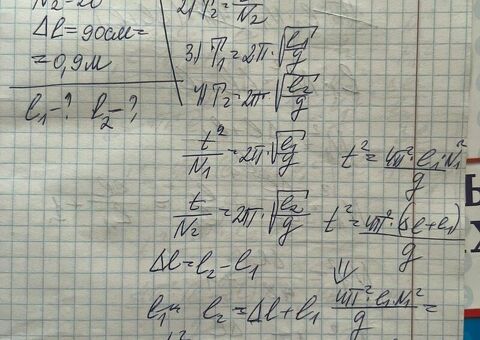 N₂=20
Δl=90см=
=0,9м
l₁-? l₂-?
2) T₂=t/N₂
3) T₁=2π·√(l₁/g)
4) T₂=2π·√(l₂/g)
t²/N₁=2π·√(l₁/g) t²=4π²·l₁·N₁²/g
t/N₂=2π·√(l₂/g) t²=4π²·(Δl+l₁)/g
Δl=l₂-l₁ ⇓
l₂=Δl+l₁ 4π²·l₁·N₁²/g=